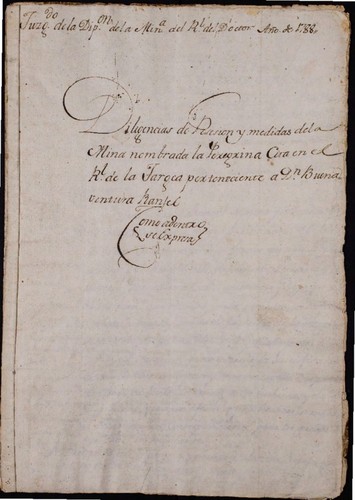 Juzg.do de la Dip.on de la Min.a del R.l del Doctor Año de 1788,
Diligencias de Posesion y medidas de la
Mina nombrada la Peregrina Cita en el
R.l de la Targea perteneciente a D.n Buena-
ventura Ranjel
Como adentro
se Expresa